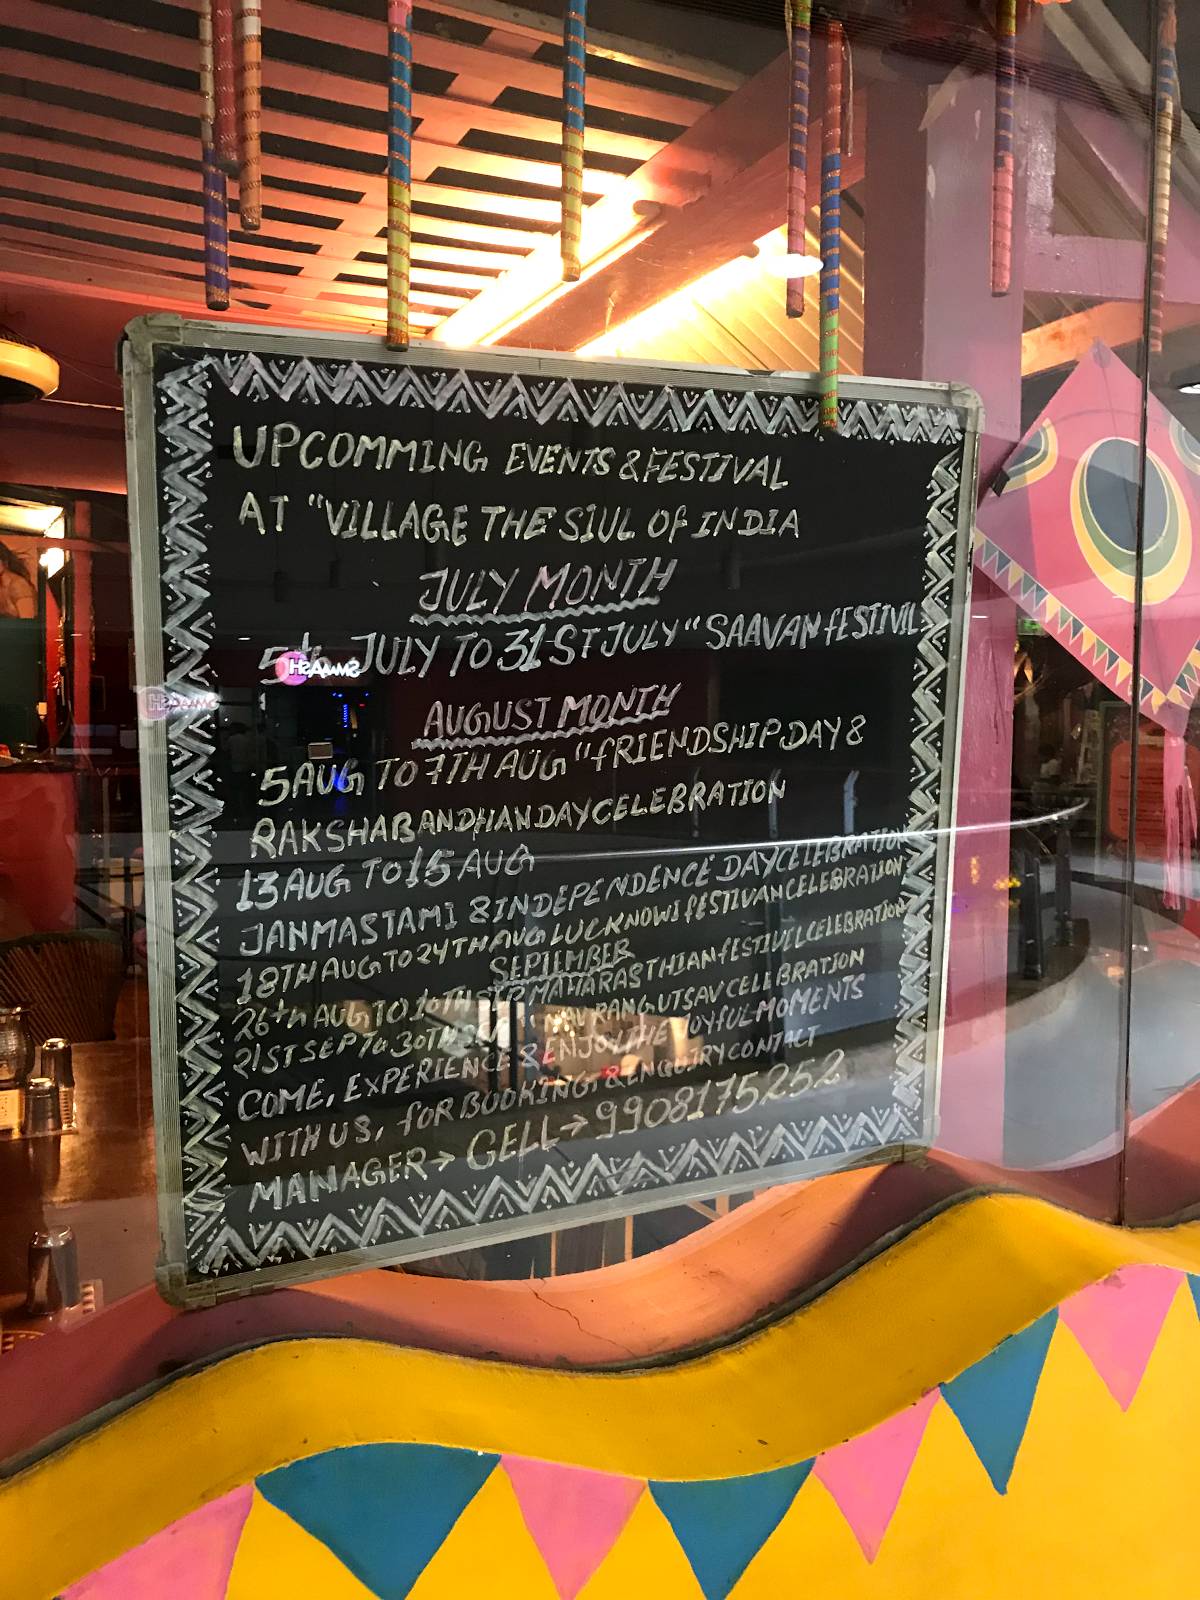 UPCOMMING EVENTS & FESTIVAL
AT "VILLAGE THE SIUL OF INDIA
JULY MONTH
5th JULY TO 31ST JULY "SAAVAN FESTIVIL
AUGUST MONTH
5 AUG TO 7TH AUG "FRIENDSHIP DAY &
RAKSHABANDHAN DAY CELEBRATION
13 AUG TO 15 AUG
JANMASTAMI & INDEPENDENCE DAY CELEBRATION
18TH AUG TO 24TH AUG LUCKNOWI FESTIVAN CELEBRATION
SEPTEMBER
26th AUG TO 10TH SEP MAHARASTHIAN FESTIVIL CELEBRATION
21ST SEP TO 30TH SEP NAVRANG UTSAV CELEBRATION
COME, EXPERIENCE & ENJOY THE JOYFUL MOMENTS
WITH US, FOR BOOKING & ENQUIRY CONTACT
MANAGER → CELL → 9908175252